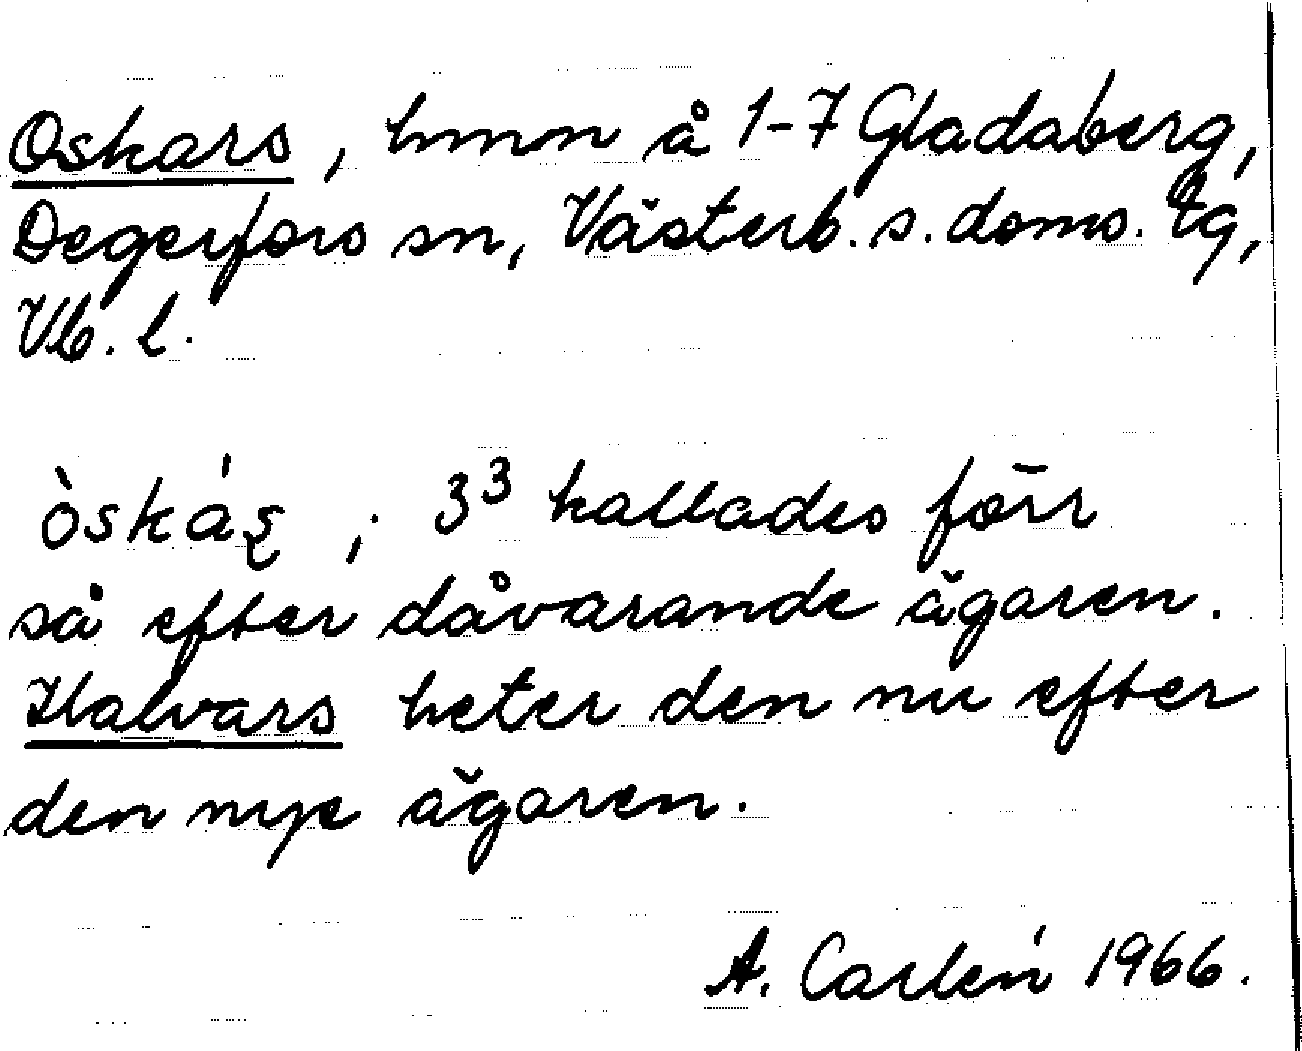 Oskars, hmn å 1-7 Gladaberg,
Degerfors sn, Västerb. s. doms. tg,
Vb. l.
òskáş ; 3³ kallades förr
så efter dåvarande ägaren.
Halvars heter den nu efter
den nye ägaren.
A. Carlén 1966.